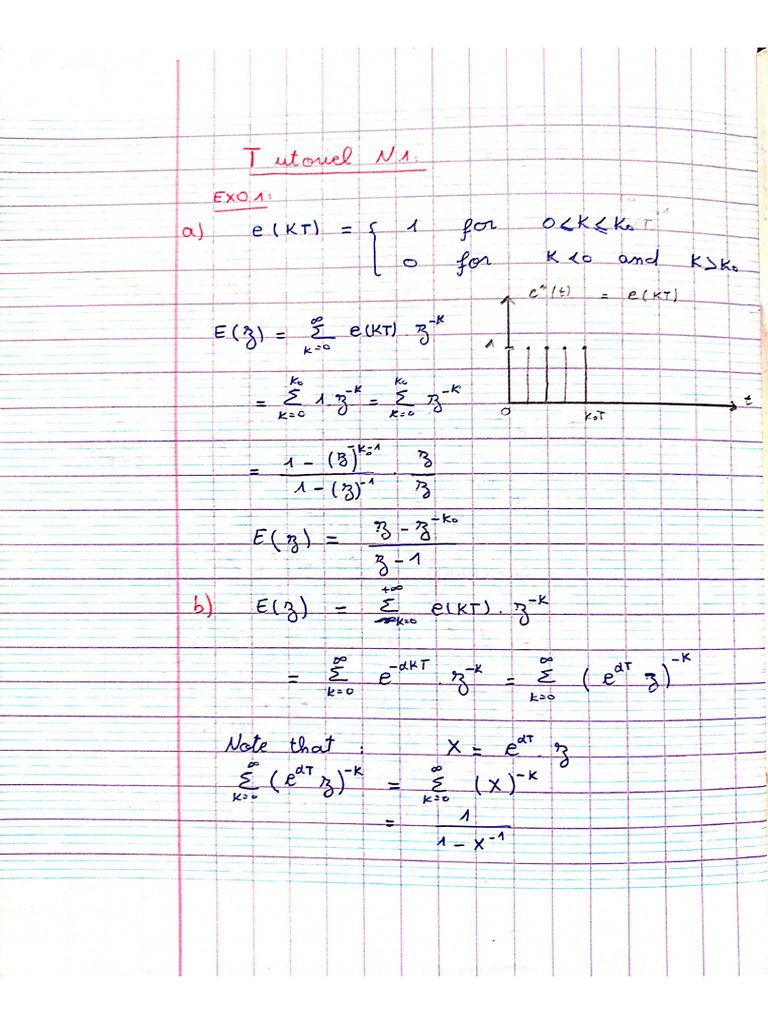 Tutoriel N1.
EXO.1:
a) e(KT) = { 1 for 0<K≤K₀
0 for K<0 and K>K₀
e*(t) = e(KT)
E(z) = ∑_{K=0}^{∞} e(KT) . z^{-K}
1
= ∑_{K=0}^{K₀} 1. z^{-K} = ∑_{K=0}^{K₀} z^{-K}
t
0 K₀T
= (1 - (z)^{-K₀-1}) / (1 - (z)^{-1}) . z/z
E(z) = (z - z^{-K₀}) / (z - 1)
b) E(z) = ∑_{K=0}^{+∞} e(KT) . z^{-K}
= ∑_{K=0}^{∞} e^{-αKT} . z^{-K} = ∑_{K=0}^{∞} (e^{αT} z)^{-K}
Note that : X = e^{αT} . z
∑_{K=0}^{∞} (e^{αT} z)^{-K} = ∑_{K=0}^{∞} (X)^{-K}
= 1 / (1 - X^{-1})